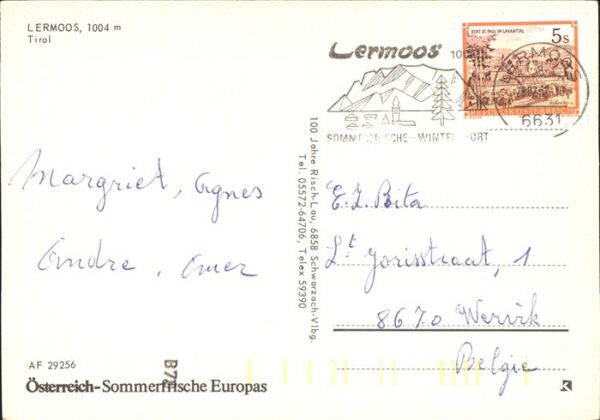 LERMOOS, 1004 m
Tirol
Margriet, Agnes
Andre, Omer
AF 29256
Österreich-Sommerfrische Europas
B72
100 Jahre Risch-Lau, 6858 Schwarzach-Vlbg.
Tel. 05572-64706, Telex 59390
Lermoos 100
SOMMERFRISCHE-WINTERSPORT
STIFT ST. PAUL IM LAVANTTAL
5s
REPUBLIK ÖSTERREICH
LERMOOS
6631
E.Z. Bita
St Jorisstraat, 1
8670 Wervik
Belgie